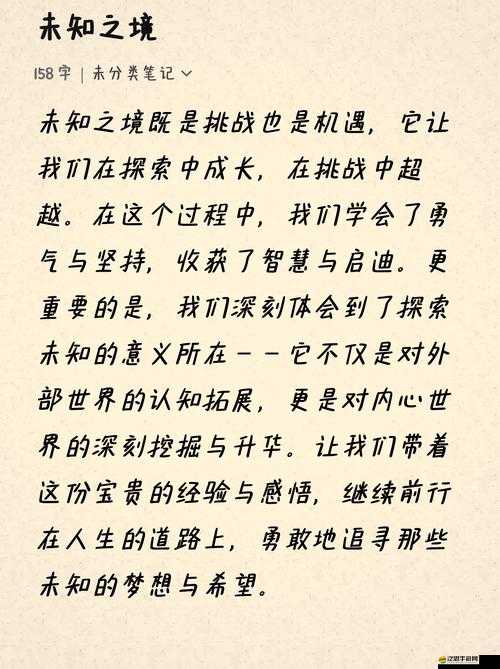 未知之境
158 字 | 未分类笔记
未知之境既是挑战也是机遇，它让
我们在探索中成长，在挑战中超
越。在这个过程中，我们学会了勇
气与坚持，收获了智慧与启迪。更
重要的是，我们深刻体会到了探索
未知的意义所在——它不仅是对外
部世界的认知拓展，更是对内心世
界的深刻挖掘与升华。让我们带着
这份宝贵的经验与感悟，继续前行
在人生的道路上，勇敢地追寻那些
未知的梦想与希望。